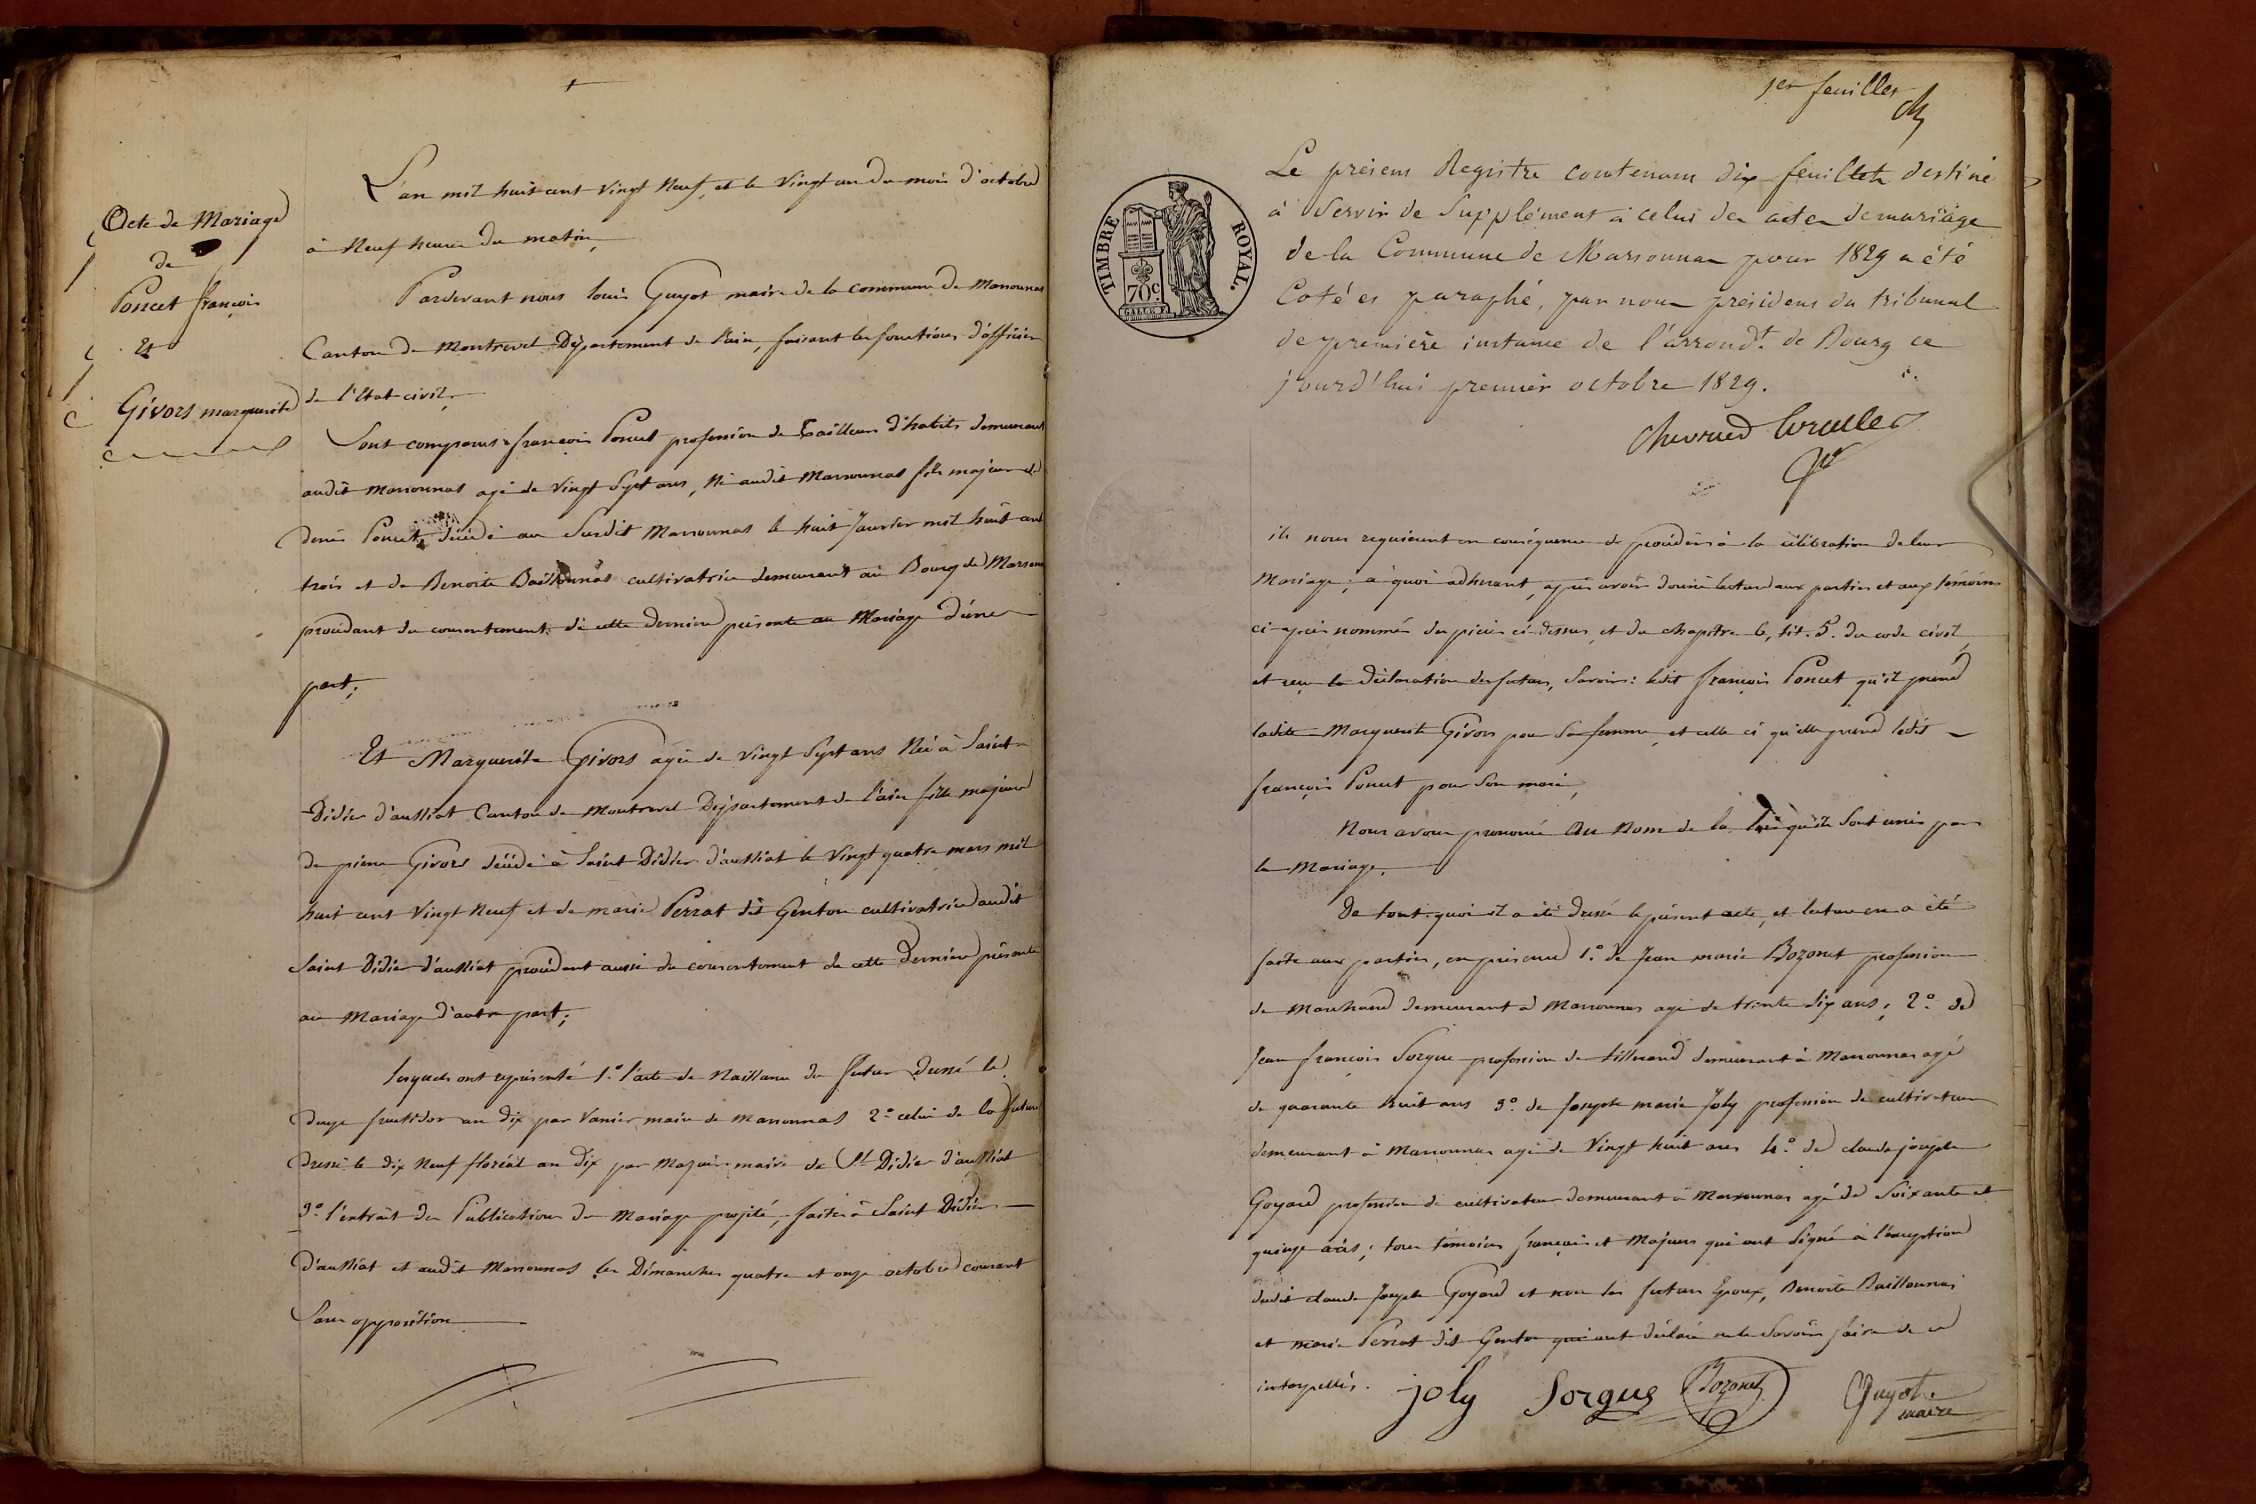 Acte de Mariage
de
Poncet françois
Et
Givors marguerite
L'an mil huit cent vingt Neuf, et le vingt un du mois d'octobre
à Neuf heures du matin,
Pardevant nous louis Guyot maire de la commune de Marsonnas
Canton de Montrevel Département de l'ain, faisant les fonctions d'officier
de l'Etat civil,
Sont comparus françois Poncet profession de Tailleur d'habits demeurant
audit Marsonnas agé de vingt Sept ans, Né audit Marsonnas fils majeur de
denis Poncet, décédé au Susdit Marsonnas le huit Janvier mil huit cent
trois et de Benoite Baillonnas cultivatrice demeurant au Bourg de Marsonnas
procédant du consentement de cette derniere présente au Mariage d'une
part;
Et Marguerite Givors agée de vingt Sept ans Née à Saint
Didier d'aussiat Canton de Montrevel Département de l'ain fille majeure
de pierre Givors décédé à Saint Didier d'aussiat le vingt quatre mars mil
huit cent vingt Neuf et de marie Perrat dit Genton cultivatrice audit
Saint Didier d'aussiat procédant aussi du consentement de cette derniere présente
au Mariage d'autre part;
lesquels ont représenté 1.º l'acte de Naissance du futur dressé le
douze fructidor an dix par Vanier maire de Marsonnas 2.º celui de la future
dressé le dix Neuf floréal an dix par maire de St Didier d'aussiat
3.º l'extrait des Publications du Mariage projeté, faites à Saint Didier
d'aussiat et audit Marsonnas les Dimanches quatre et onze octobre courant
Sans opposition
1er feuillet
TIMBRE ROYAL.
70c.
Le présent Registre contenant dix feuillets destiné
à Servir de Supplément à celui des actes de mariage
de la Commune de Marsonnas pour 1829 a été
Coté et paraphé, par nous président du tribunal
de première instance de l'arrondt. de Bourg ce
jourd'hui premier octobre 1829.
ils nous requierent en conséquence de procéder à la célébration de leur
Mariage; à quoi adhérant, après avoir donné lecture aux parties et aux témoins
ci-après nommés des pièces ci-dessus, et du chapitre 6, tit. 5. du code civil,
et reçu la déclaration des futurs, Savoir: ledit françois Poncet qu'il prend
ladite Marguerite Givors pour Sa femme, et celle ci qu'elle prend ledit
françois Poncet pour Son mari,
Nous avons prononcé Au Nom de la loi qu'ils Sont unis par
le Mariage.
De tout quoi il a été dressé le présent acte, et lecture en a été
faite aux parties, en présence 1.º de Jean marie Bozonet profession
de Marchand demeurant à Marsonnas agé de trente Six ans; 2.º de
Jean françois Sorgue profession de tisserand demeurant à Marsonnas agé
de quarante huit ans 3.º de Joseph marie Joly profession de cultivateur
demeurant à Marsonnas agé de Vingt huit ans 4.º de claude joseph
Goyard profession de cultivateur demeurant à Marsonnas agé de Soixante et
quinze ans; tous témoins françois et Majeurs qui ont Signé à l'exception
dudit claude Joseph Goyard et non les futurs Epoux, Benoite Baillonnas
et marie Perrat dit Genton qui ont déclaré ne le Savoir faire de ce
interpellés.
joly Sorgue Bozonet Guyot
maire